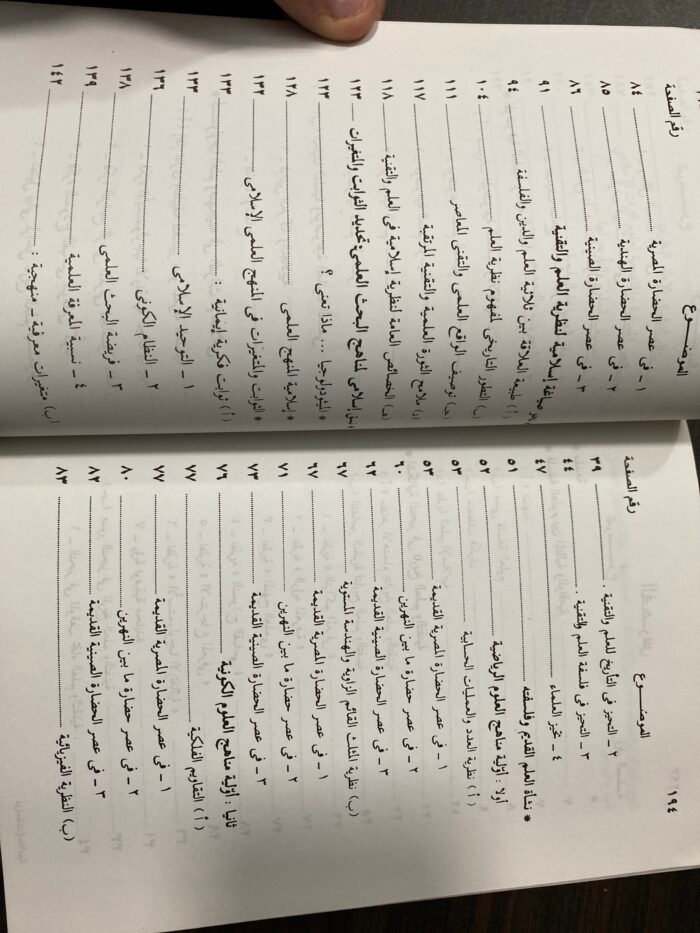 ١٩٤
الموضــوع رقم الصفحة
٢ ـ التحيز فى التأريخ للعلم والتقنية ٣٩
٣ ـ التحيز فى فلسفة العلم والتقنية ٤٤
٤ ـ تحيز العلماء ٤٧
* نشأة العلم القديم وفلسفته ٥١
أولا : أولية مناهج العلوم الرياضية ٥٢
( أ ) نظرية العدد والعمليات الحسابية ٥٣
١ ـ فى عصر الحضارة المصرية القديمة ٥٣
٢ ـ فى عصر حضارة ما بين النهرين ٦٠
٣ ـ فى عصر الحضارة الصينية القديمة ٦٢
(ب) نظرية المثلث القائم الزاوية والهندسة المستوية ٦٧
١ ـ فى عصر الحضارة المصرية القديمة ٦٧
٢ ـ فى عصر حضارة ما بين النهرين ٧١
٣ ـ فى عصر الحضارة الصينية القديمة ٧٣
ثانيا : أولية مناهج العلوم الكونية ٧٦
( أ ) التقاويم الفلكية ٧٧
١ ـ فى عصر الحضارة المصرية القديمة ٧٧
٢ ـ فى عصر حضارة ما بين النهرين ٨٠
٣ ـ فى عصر الحضارة الصينية القديمة ٨٢
(ب) النظرية الفيزيائية ٨٣
الموضــوع رقم الصفحة
١ ـ فى عصر الحضارة المصرية ٨٤
٢ ـ فى عصر الحضارة الهندية ٨٥
٣ ـ فى عصر الحضارة الصينية ٨٦
صياغة إسلامية لنظرية العلم والتقنية ٩١
( أ ) طبيعة العلاقة بين ثلاثية العلم والدين والفلسفة ٩٤
(ب) التطور التاريخى لمفهوم نظرية العلم ١٠٤
(جـ) توصيف الواقع العلمى والتقنى المعاصر ١١١
(د) ملامح الثورة العلمية والتقنية المرتقبة ١١٧
(هـ) الخصائص العامة لنظرية إسلامية فى العلم والتقنية ١١٨
إسلامى لمناهج البحث العلمى: تحديد الثوابت والمتغيرات ١٢٣
* الميثودولوجيا ... ماذا تعنى ؟ ١٢٣
* إسلامية المنهج العلمى ١٢٨
* الثوابت والمتغيرات فى المنهج العلمى الإسلامى ١٣٢
( أ ) ثوابت فكرية إيمانية : ١٣٣
١ ـ التوحيد الإسلامى ١٣٣
٢ ـ النظام الكونى ١٣٦
٣ ـ فريضة البحث العلمى ١٣٨
٤ ـ نسبية المعرفة العلمية ١٣٩
(ب) متغيرات معرفية ـ منهجية : ١٤٢